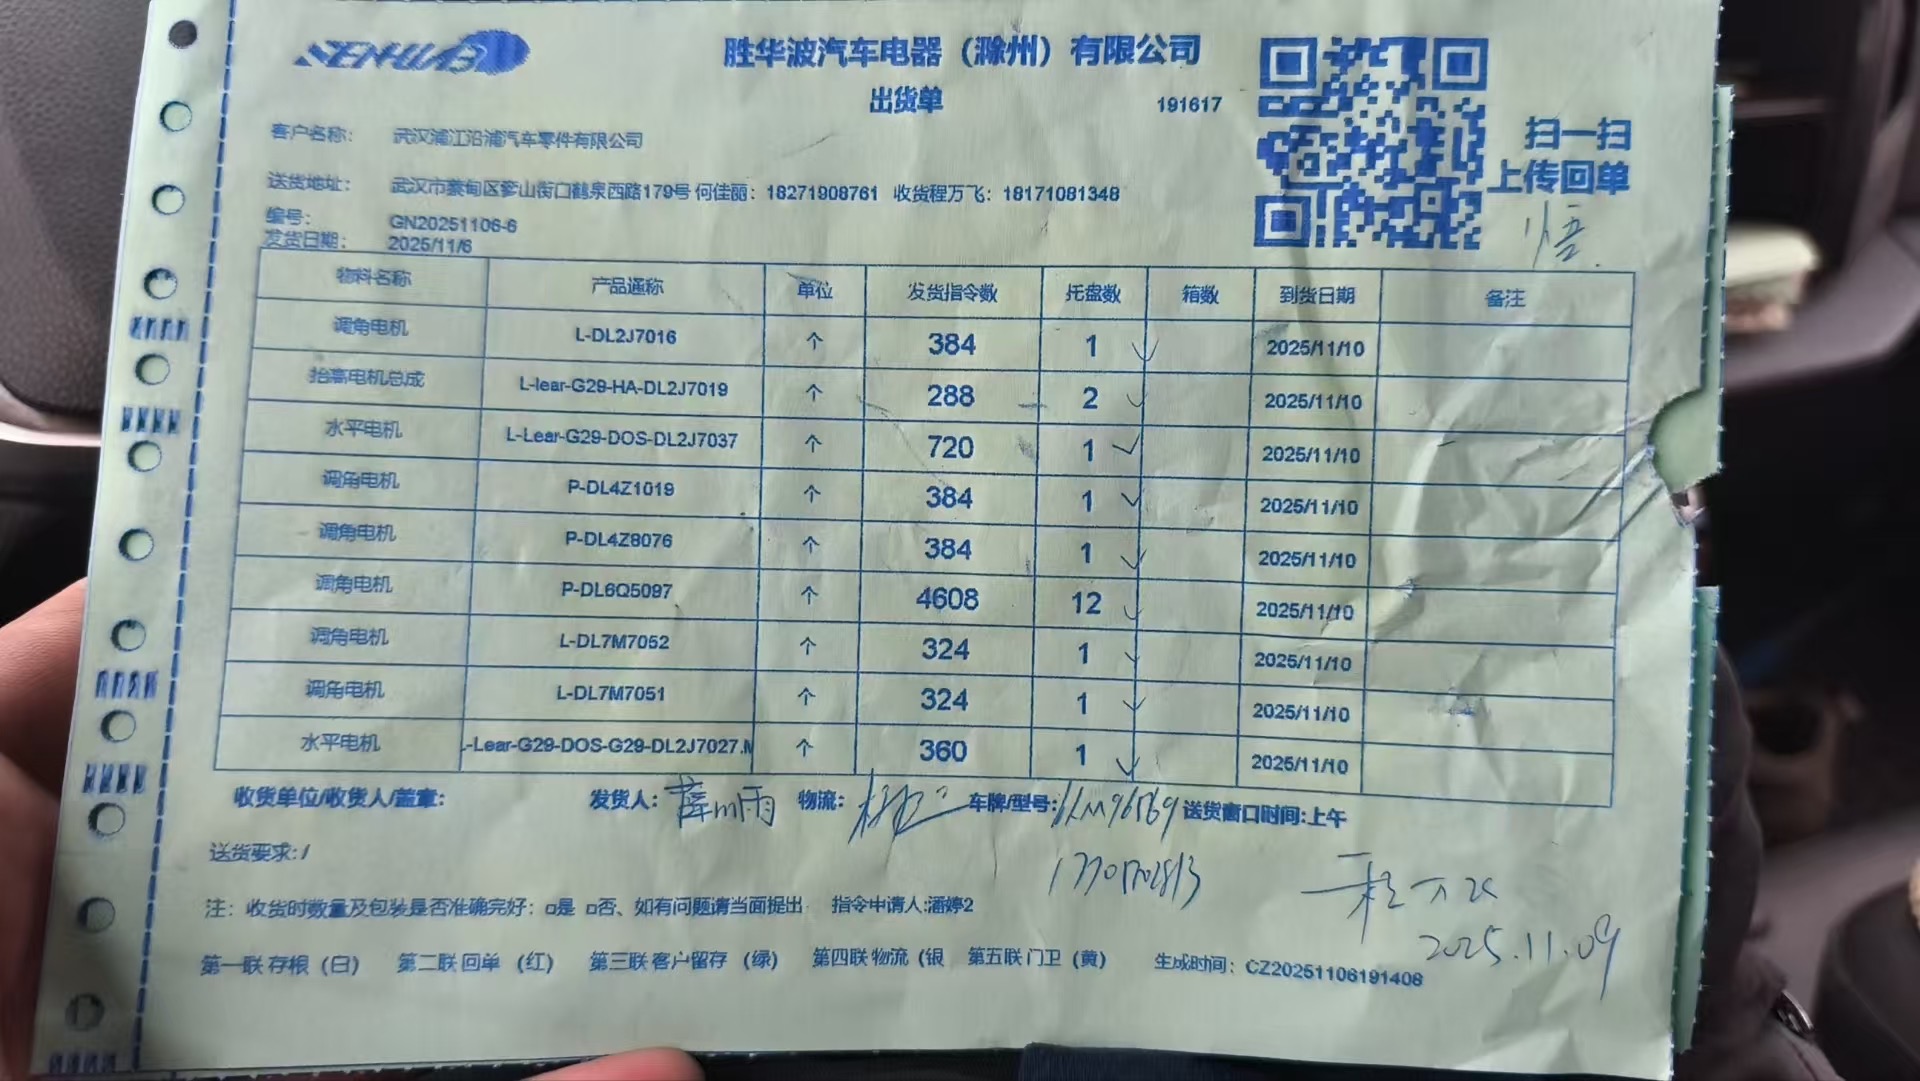 SENHUAB
胜华波汽车电器（滁州）有限公司
出货单 191617
扫一扫
上传回单
客户名称： 武汉浦江沿浦汽车零件有限公司
送货地址： 武汉市蔡甸区奓山街口鹤泉西路179号 何佳丽：18271908761 收货程万飞：18171081348
编号： GN20251106-6
发货日期： 2025/11/6
物料名称 产品通称 单位 发货指令数 托盘数 箱数 到货日期 备注
调角电机 L-DL2J7016 个 384 1 2025/11/10
抬高电机总成 L-lear-G29-HA-DL2J7019 个 288 2 2025/11/10
水平电机 L-Lear-G29-DOS-DL2J7037 个 720 1 2025/11/10
调角电机 P-DL4Z1019 个 384 1 2025/11/10
调角电机 P-DL4Z8076 个 384 1 2025/11/10
调角电机 P-DL6Q5097 个 4608 12 2025/11/10
调角电机 L-DL7M7052 个 324 1 2025/11/10
调角电机 L-DL7M7051 个 324 1 2025/11/10
水平电机 -Lear-G29-DOS-G29-DL2J7027.M 个 360 1 2025/11/10
收货单位/收货人/盖章： 发货人： 物流： 车牌/型号： 送货窗口时间:上午
送货要求:/
程万飞
2025.11.09
注：收货时数量及包装是否准确完好：□是 □否、如有问题请当面提出 指令申请人:潘婷2
第一联 存根（白） 第二联 回单（红） 第三联 客户留存（绿） 第四联 物流（银 第五联 门卫（黄） 生成时间：CZ20251106191408